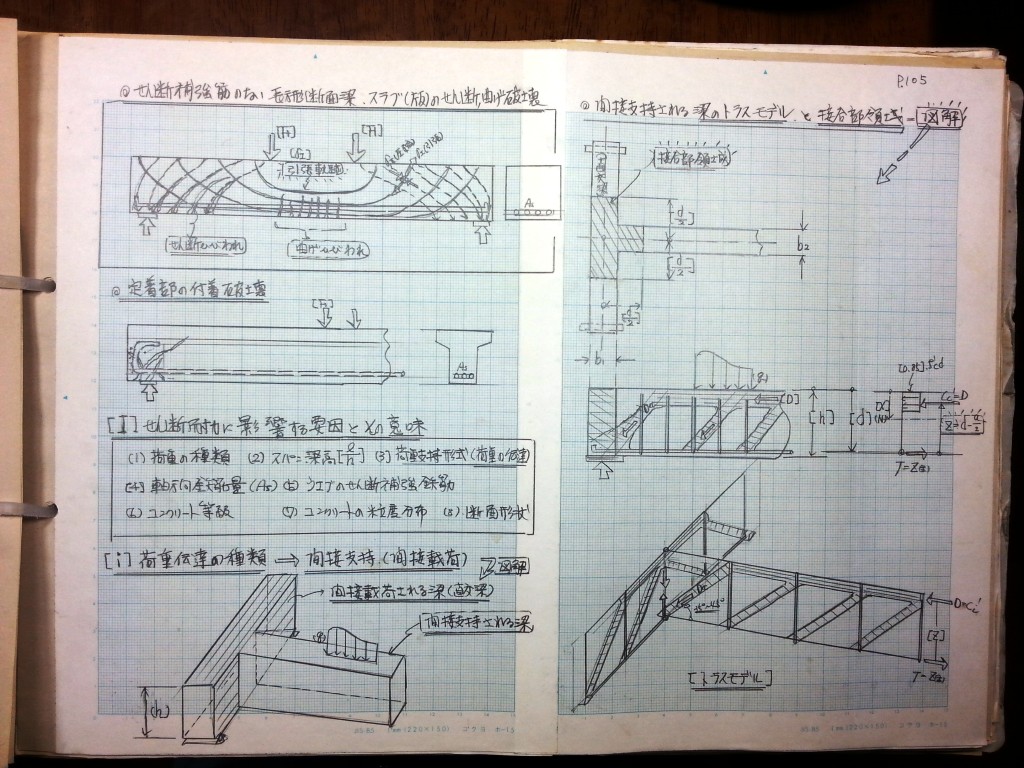 @ せん断補強筋のない 長方形断面梁、スラブ(版)のせん断曲げ破壊
[P1] [P1]
引張軌跡
As
せん断ひびわれ
曲げひびわれ
@ 定着部の付着破壊
As
[I] せん断耐力に影響する要因とその意味
(1) 荷重の種類 (2) スパン・梁高[ℓ/h] (3) 荷重支持形式(荷重の伝達)
(4) 軸方向鉄筋量(As) (5) ウエブのせん断補強鉄筋
(6) コンクリート等級 (7) コンクリートの粒度分布 (8) 断面形状
[i] 荷重伝達の種類 ⇒ 間接支持(間接載荷) 図解
間接載荷される梁(直交梁)
間接支持される梁
(h)
35.85 1mm(220×150) コクヨ ホ-15
P.105
@ 間接支持される梁のトラスモデル と 接合部領域 = 図解
接合部領域
[d/2]
b2
[d/2]
[d/2]
b1
[D]
[h]
[d]
T=Z
D=Cc'
[Z]
T=Z
[トラスモデル]
35.85 1mm(220×150) コクヨ ホ-15